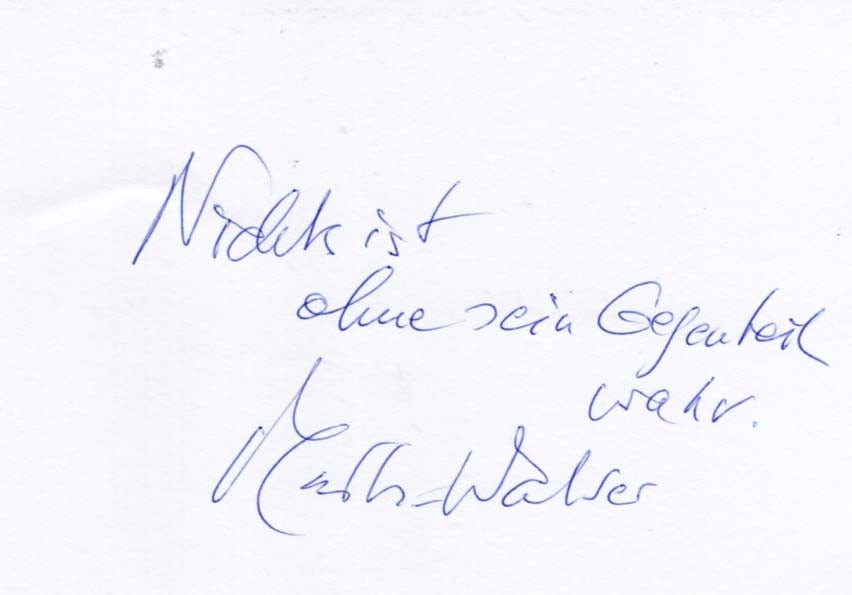 Nichts ist
ohne sein Gegenteil
wahr.
Martin Walser